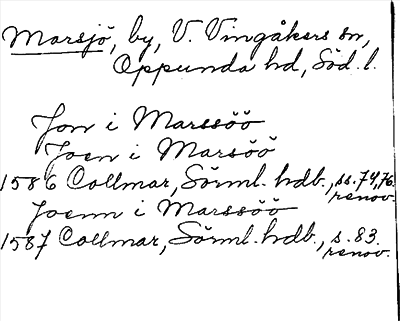 Marsjö, by, V. Vingåkers sn,
Oppunda hd, Söd. l.
Jon i Marssöö
Joen i Marsöö
1586 Collmar, Sörml. hdb., ss. 74, 76.
renov.
Joenn i Marssöö
1587 Collmar, Sörml. hdb., s. 83.
renov.